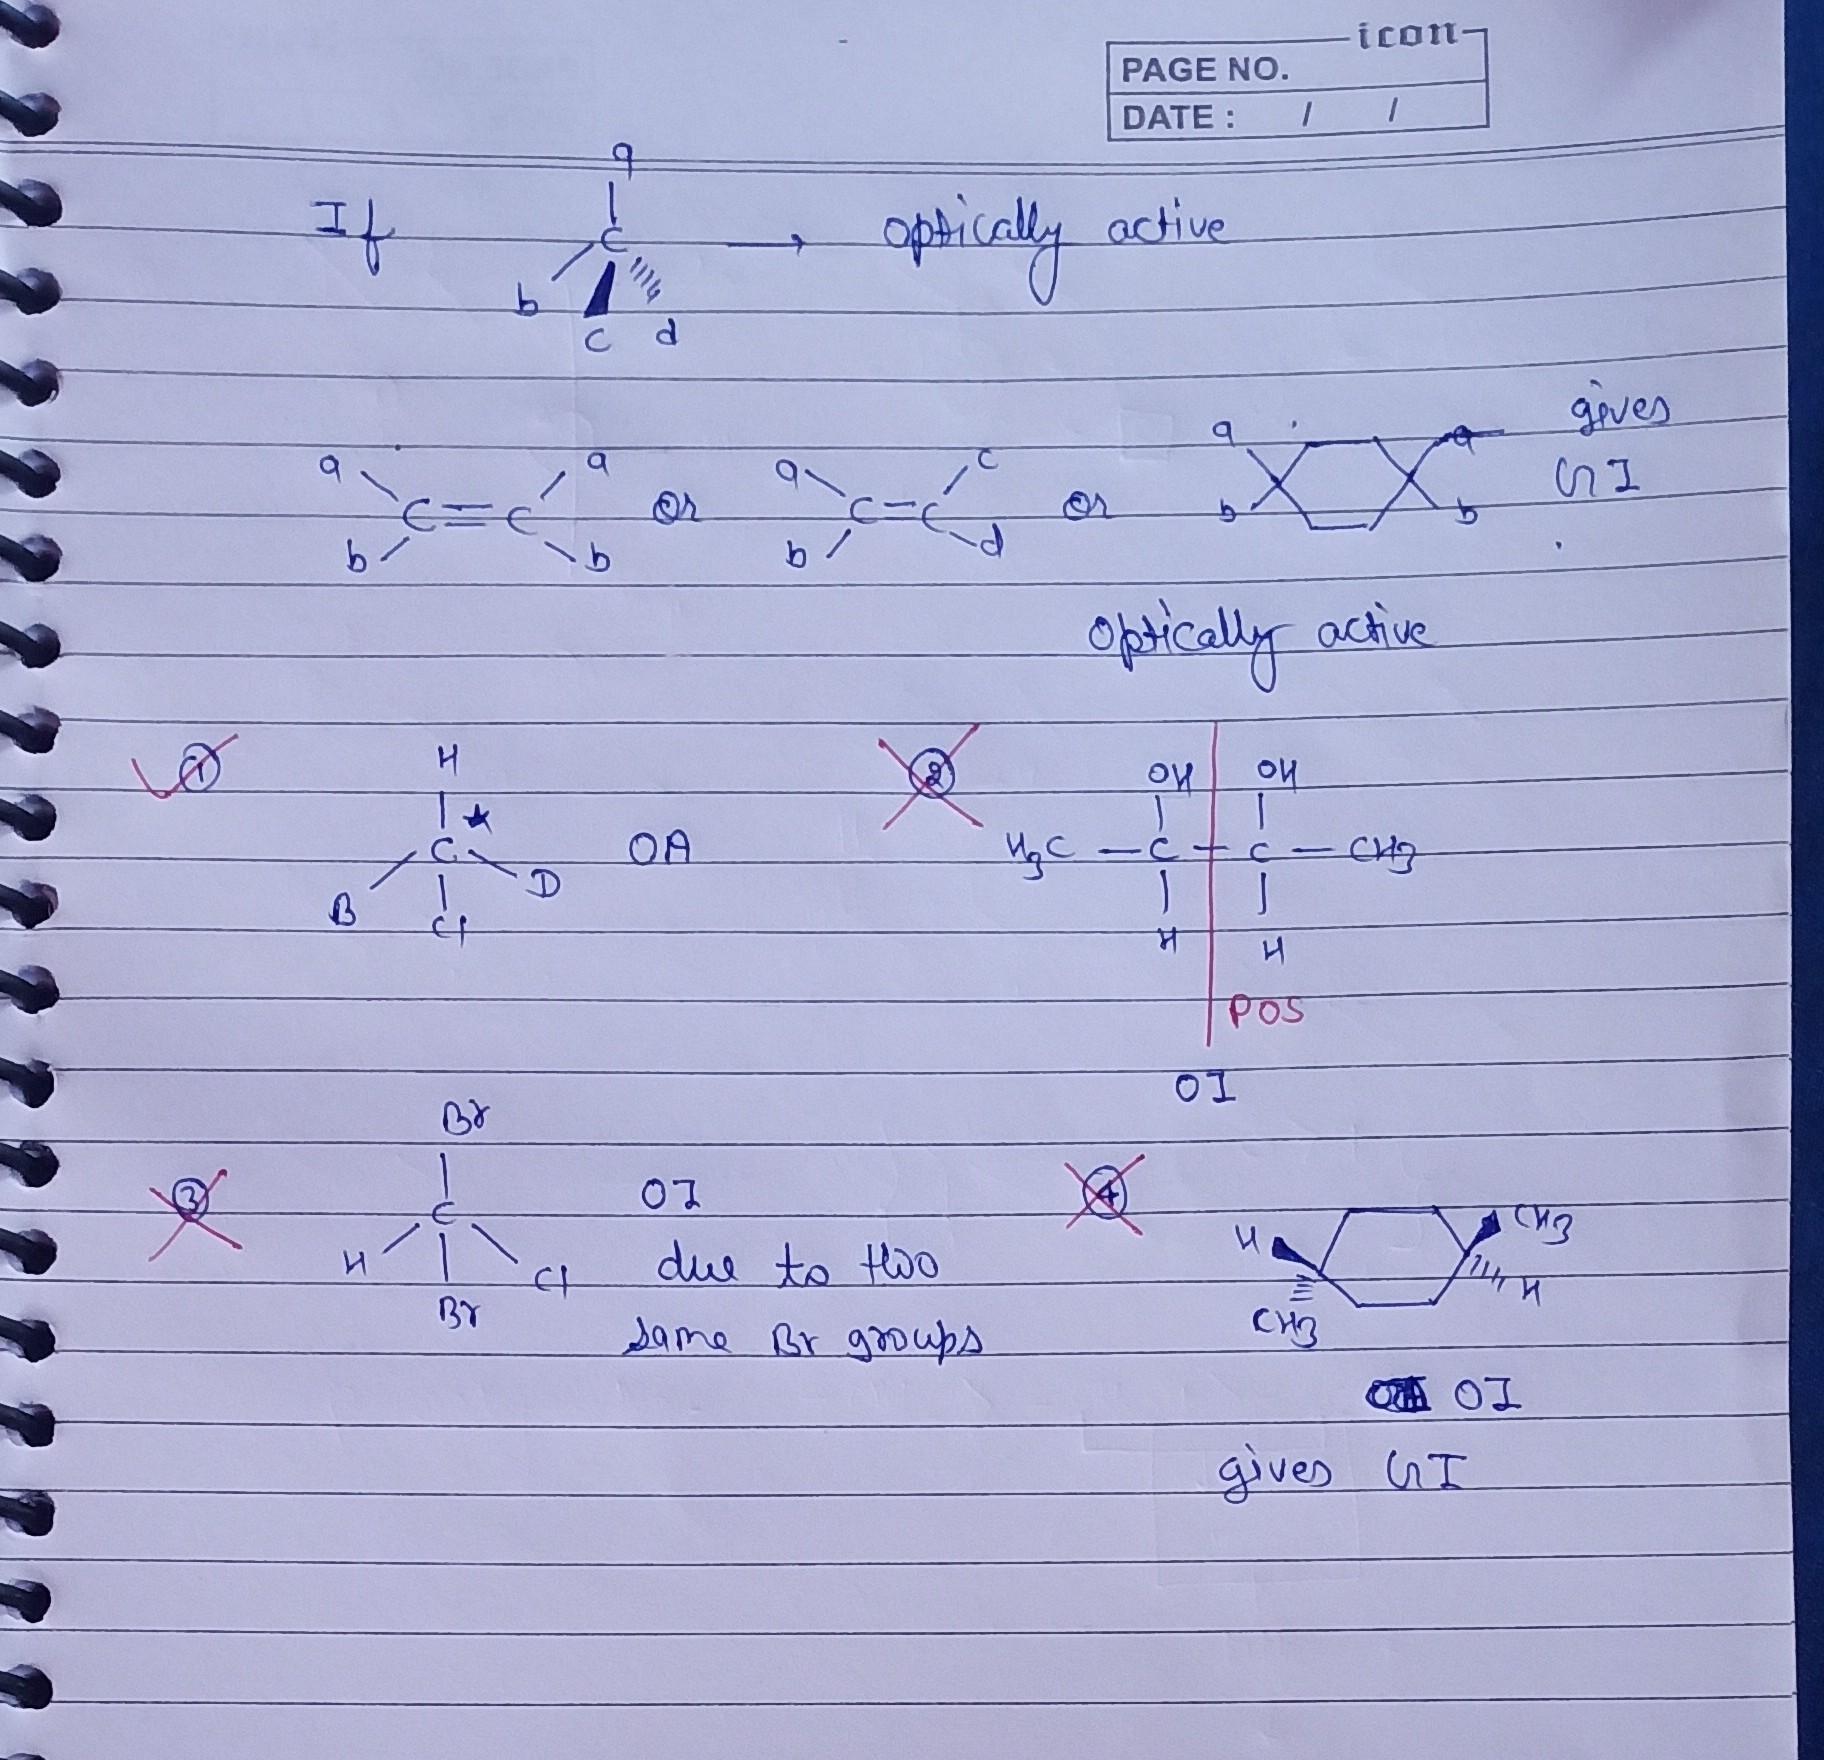 icon
PAGE NO.
DATE : / /
a
If C → optically active
b c d
gives
a a a c a a
C=C or C=C or GI
b b b d b b
Optically active
① H ② OH OH
C* OA H3C - C - C - CH3
B D
Cl H H
POS
OI
Br
③ C OI ④ H CH3
H Cl due to two H
Br same Br groups CH3
OI
gives GI